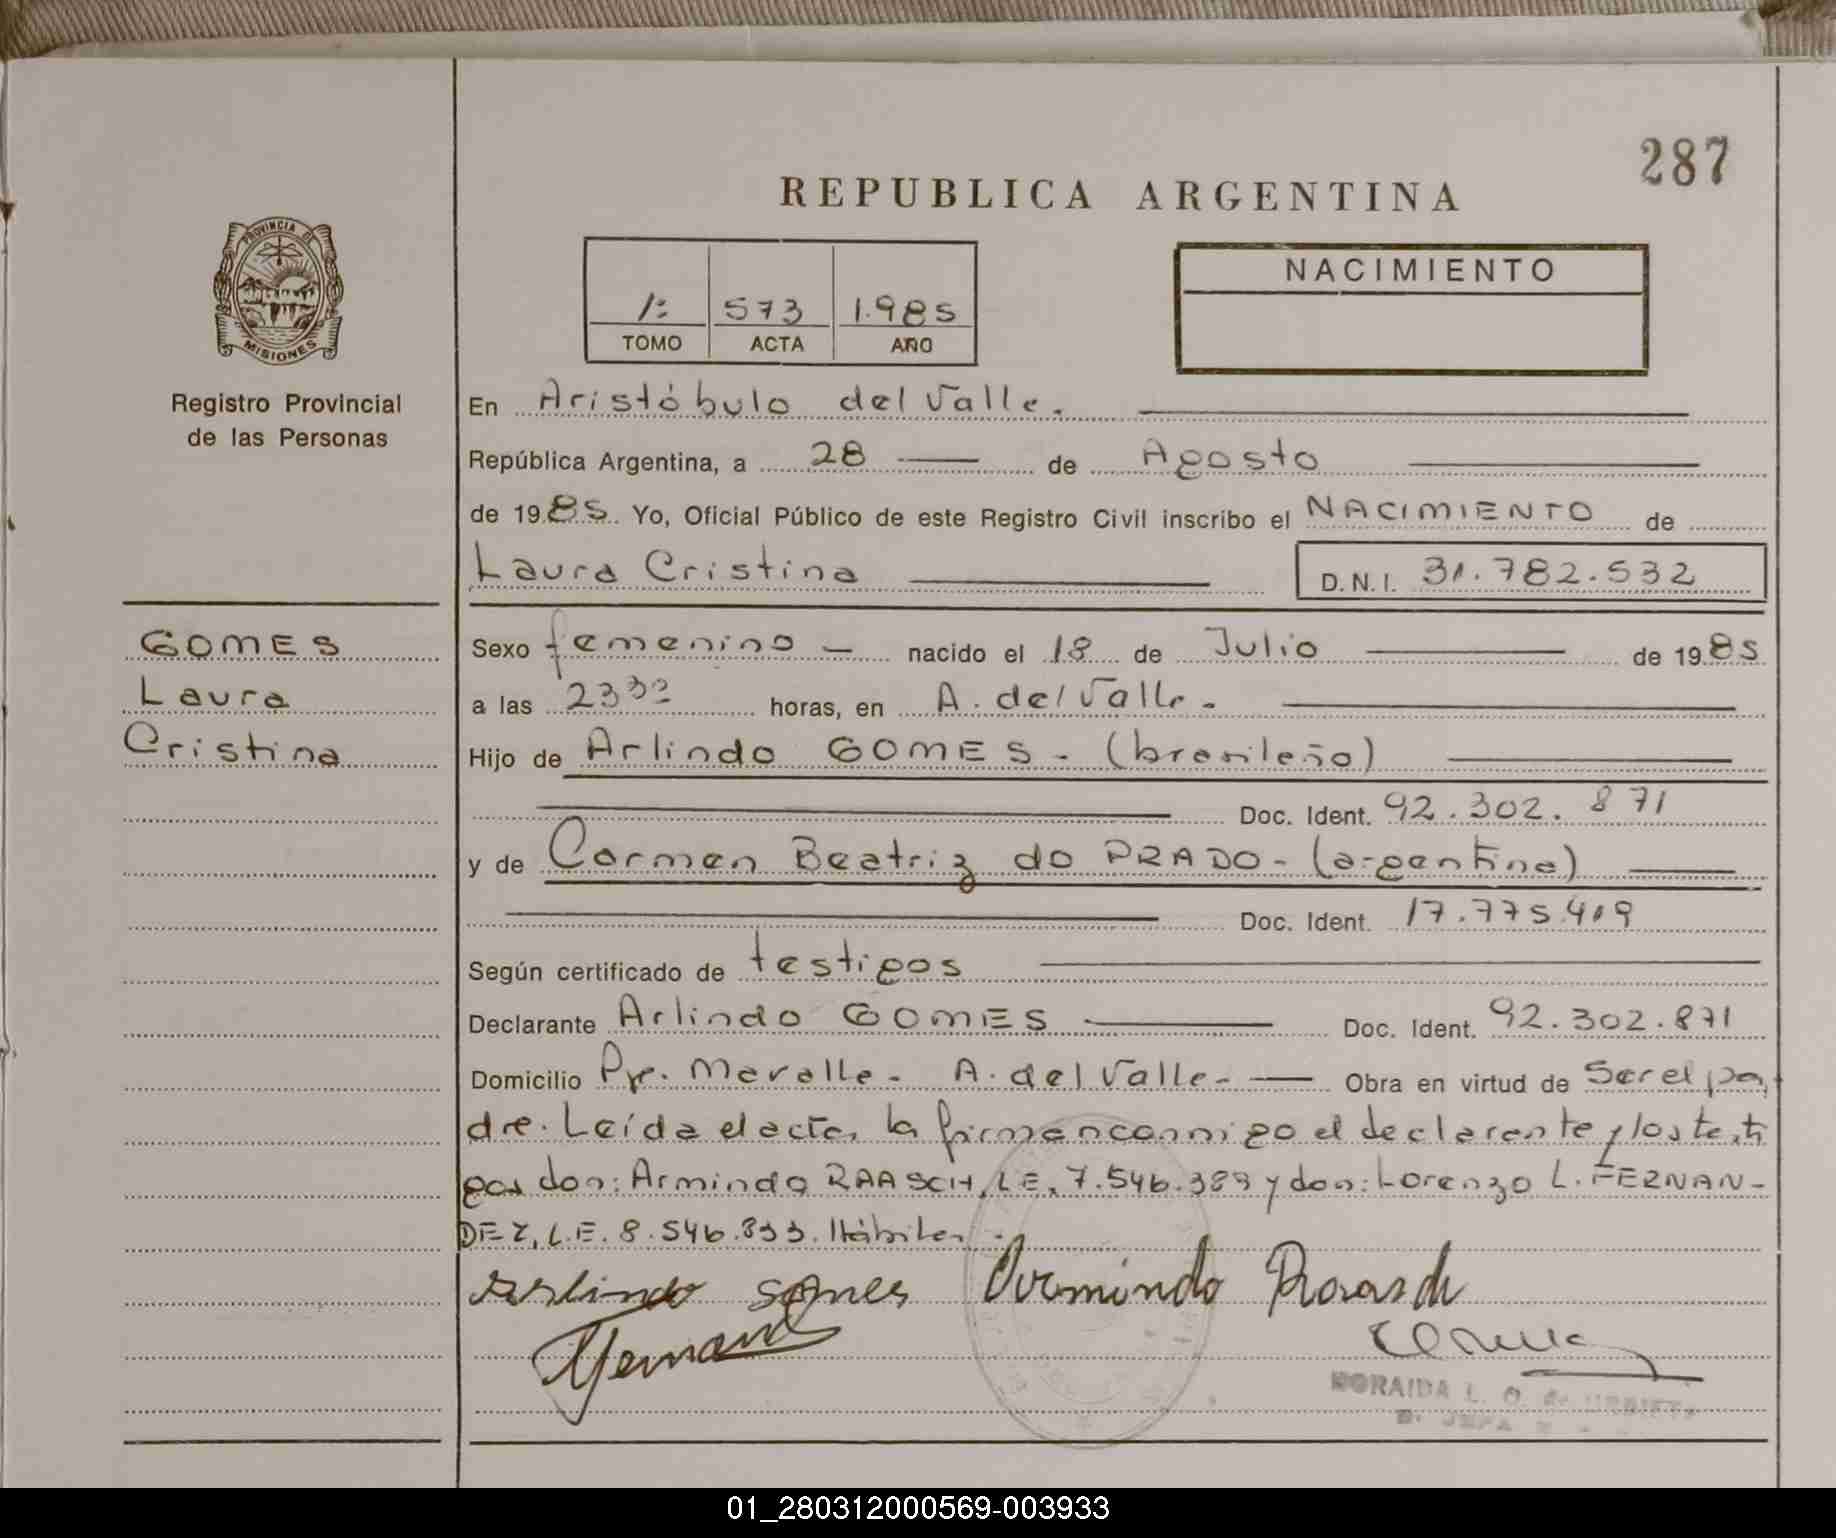 287
REPUBLICA ARGENTINA
PROVINCIA DE
MISIONES
Registro Provincial
de las Personas
1º 573 1.985
TOMO ACTA AÑO
NACIMIENTO
En Aristóbulo del Valle.
República Argentina, a 28 de Agosto
de 1985 Yo, Oficial Público de este Registro Civil inscribo el NACIMIENTO de
Laura Cristina D.N.I. 31.782.532
GOMES
Laura
Cristina
Sexo femenino nacido el 18 de Julio de 1985
a las 23 30 horas, en A. del Valle.
Hijo de Arlindo GOMES - (brasileño)
Doc. Ident. 92.302.871
y de Carmen Beatriz do PRADO - (argentina)
Doc. Ident. 17.775.419
Según certificado de testigos
Declarante Arlindo GOMES Doc. Ident. 92.302.871
Domicilio A. del Valle - Obra en virtud de Ser el pa
dre. Leída el acta, la firman conmigo el declarante y los testi
gos don: Armindo RAASCH, L.E. 7.546.389 y don: Lorenzo L. FERNAN-
DEZ, L.E. 8.546.833. Hábiles.
Arlindo gomes Armindo Raasch
NORAIDA L. O. de
JEFA
01_280312000569-003933